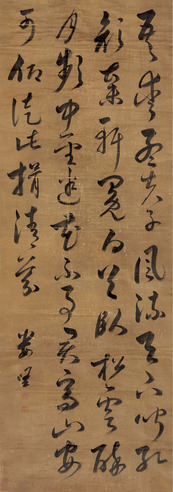 吾愛孟夫子風流天下聞紅
顏棄軒冕白首臥松雲醉
月頻中聖迷花不事君高山安
可仰徒此揖清芬
婁堅